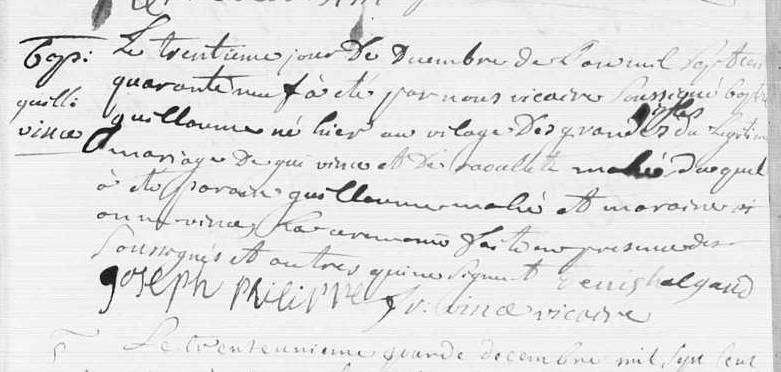 Bapt:
guill:
vince
Le trentieme jour De Decembre de L'an mil Sept cent
quarante neuf à été par nous vicaire Soussigné baptisé
guillaume né hier au vilage Des grands du Legitime
mariage De gui vince et De raoullette mahé Duquel
à été parain guillaume mahé et maraine
vince La ceremonie faite en presence des
Soussignés et autres qui ne Signent
joseph philippe vince vicaire
Le trente unieme jour de decembre mil Sept cent